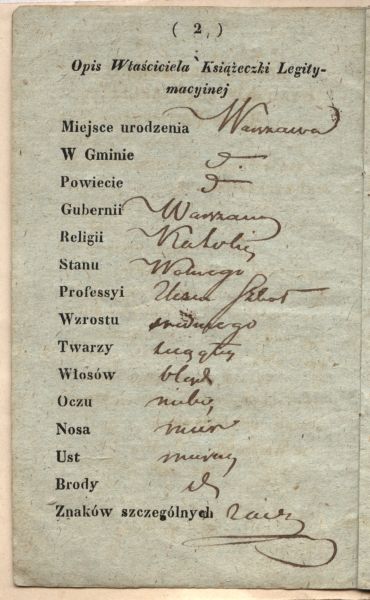 ( 2 )
Opis Właściciela Książeczki Legity-
macyinej
Miejsce urodzenia Warszawa
W Gminie d°
Powiecie d°
Gubernii Warszaw
Religii Katolic
Stanu Wolnego
Professyi Uczeń Szkół
Wzrostu średniego
Twarzy ściągłej
Włosów blond
Oczu nieb
Nosa mier
Ust miern
Brody
Znaków szczególnych żadn